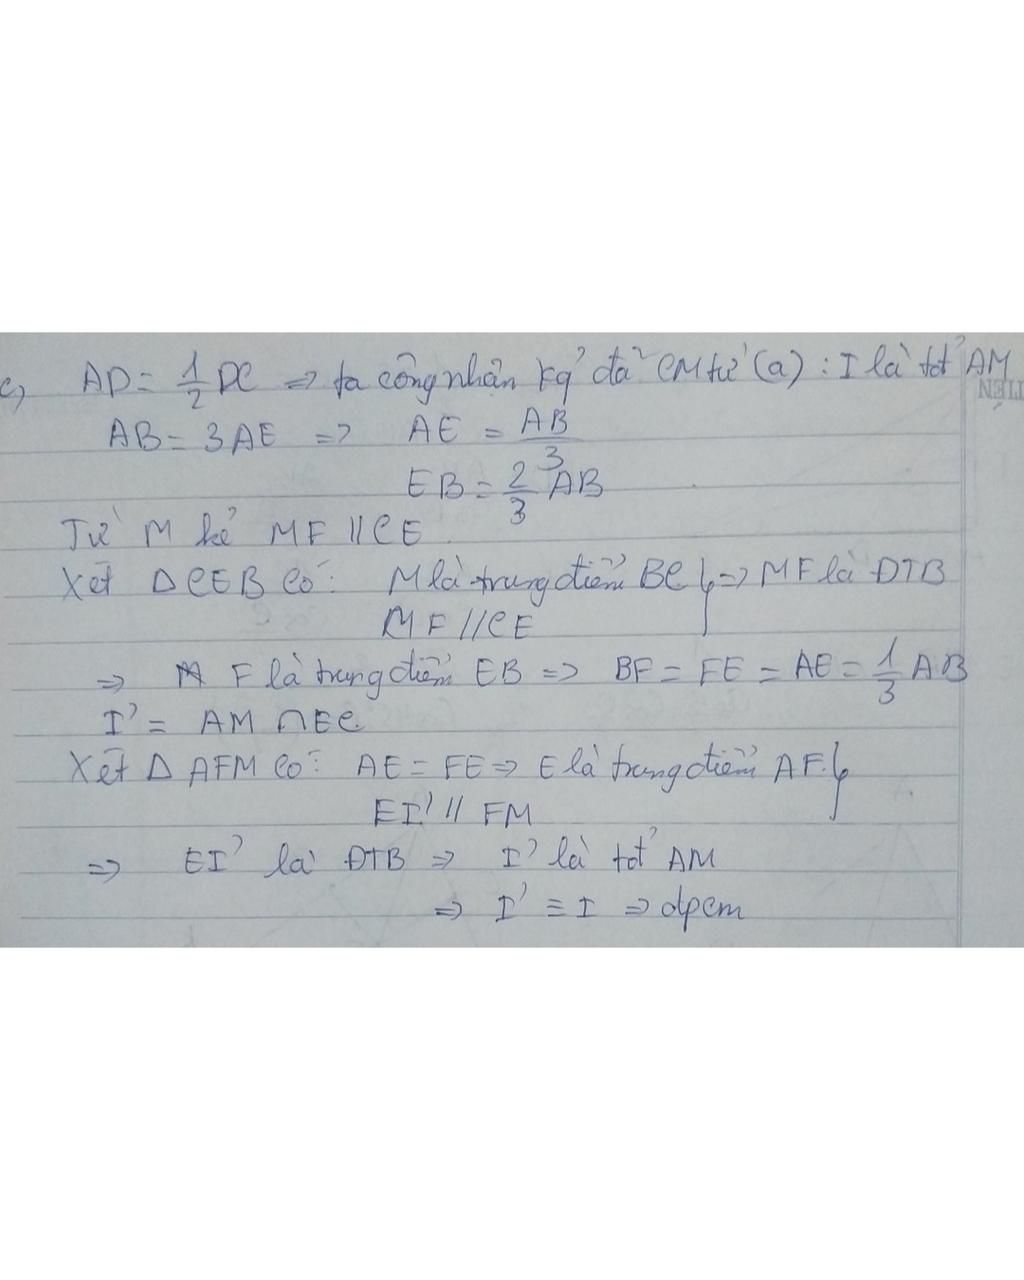 c, AD = 1/2 DC => ta công nhận kq' đã CM từ (a) : I là tđ' AM
AB = 3AE => AE = AB/3
EB = 2/3 AB
Từ M kẻ MF // CE
Xét Δ CEB có: M là trung điểm BC } => MF là ĐTB
MF // CE
=> F là trung điểm EB => BF = FE = AE = 1/3 AB
I' = AM ∩ EC
Xét Δ AFM có: AE = FE => E là trung điểm AF. }
EI' // FM
=> EI' là ĐTB => I' là tđ' AM
=> I' ≡ I => đpcm